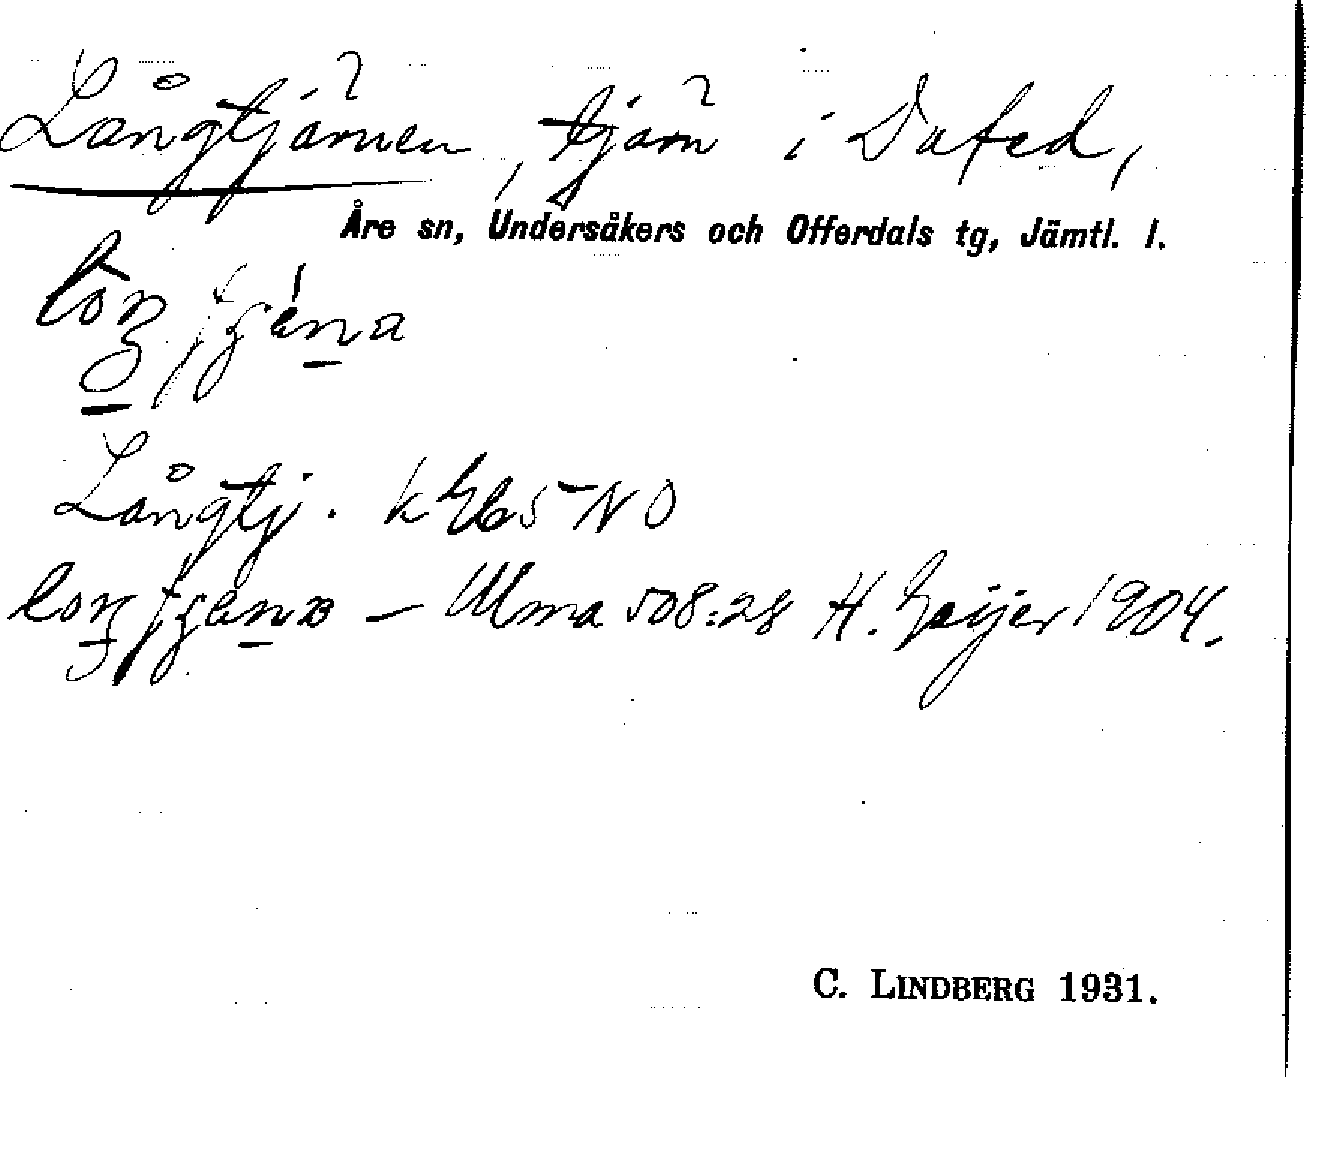 Långtjärnen, tjärn i Dufed,
Åre sn, Undersåkers och Offerdals tg, Jämtl. l.
Långtj. k 65 NO
— Ulma 508:28 H. Geijer 1904.
C. LINDBERG 1931.